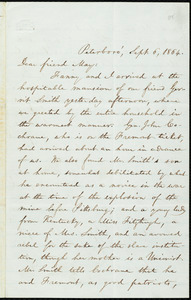 Peterboro', Sept. 6, 1864.
Dear friend May:
Fanny and I arrived at the
hospitable mansion of our friend Ger-
rit Smith yesterday afternoon, where
we greeted by the entire household in
the warmest manner. Gen. John Co-
chrane, who is on the Fremont ticket,
had arrived about an hour in advance
of us. We also found Mr. Smith's son
at home, somewhat debilitated by what
he encountered as a novice in the war
at the time of the explosion of the
mine before Petersburg; and a young lady
from Kentucky, a Miss Fitzhugh,
niece of Mrs. Smith, and an avowed
rebel for the sake of the slave institu-
tion, though her mother is a Unionist.
Mr. Smith tells Cochrane that he
and Fremont, as good patriots,